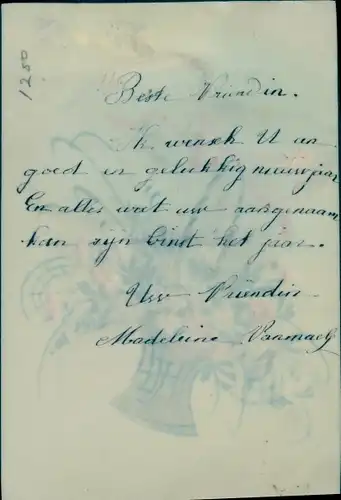 1250
Beste Vriendin.
Ik wensch U en
goed en gelukkig nieuwjaar
En alles wat uw aangenaam
kan zijn binst het jaar.
Uw Vriendin
Madeleine Vanmaele